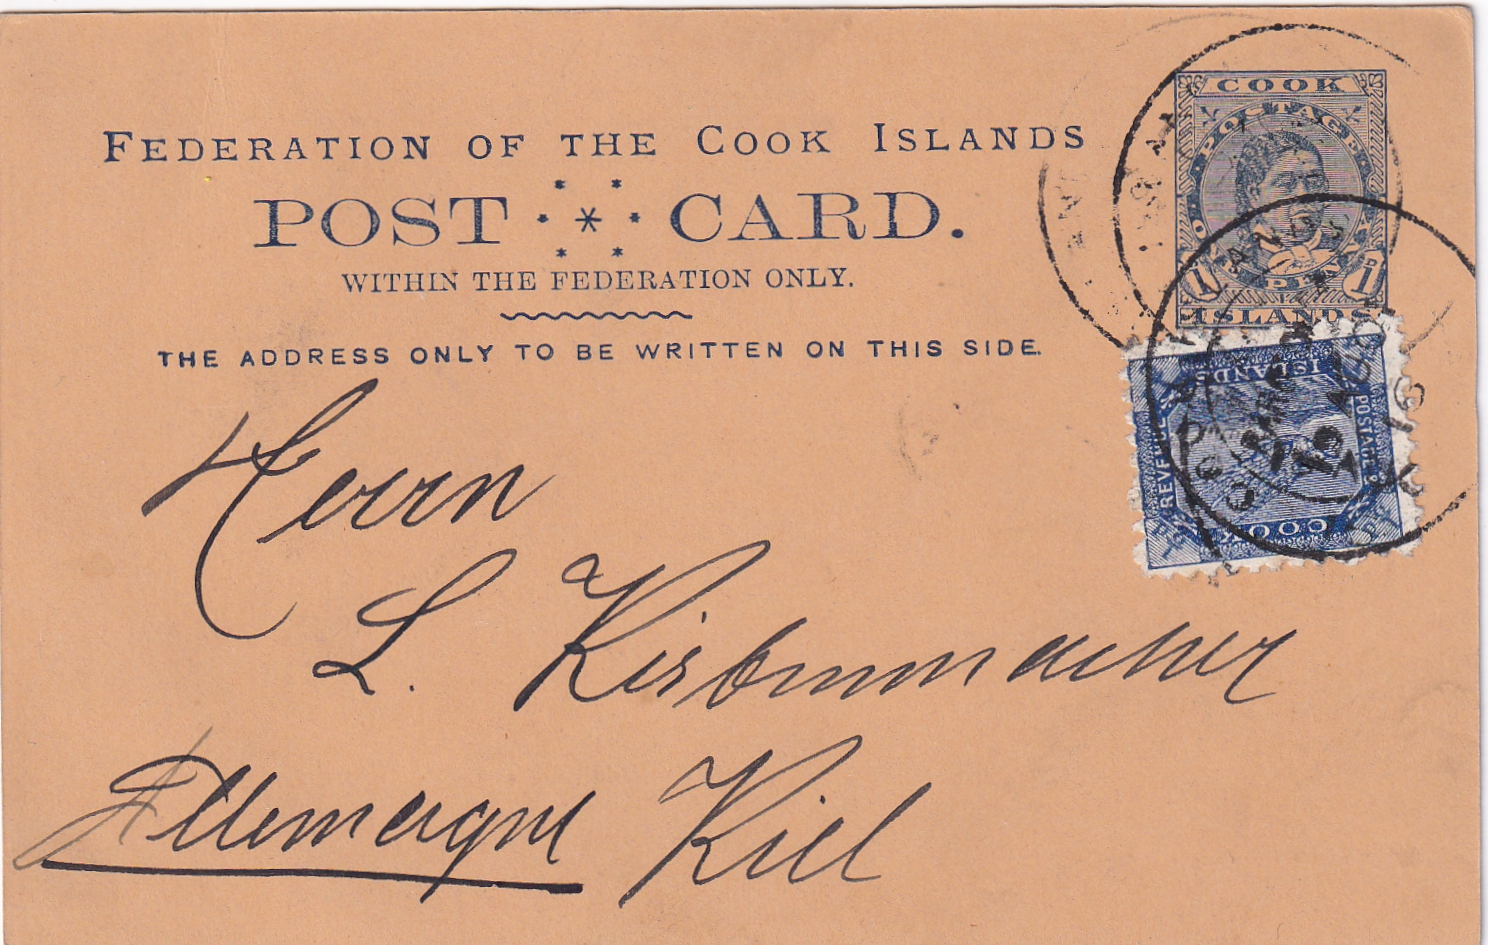 FEDERATION OF THE COOK ISLANDS
POST CARD.
WITHIN THE FEDERATION ONLY.
THE ADDRESS ONLY TO BE WRITTEN ON THIS SIDE.
COOK
POSTAGE
ONE PENNY
1D 1D
ISLANDS
ISLANDS
POSTAGE &
REVENUE
COOK
Herrn
L. Kirbmmacher
Allemagne Kiel